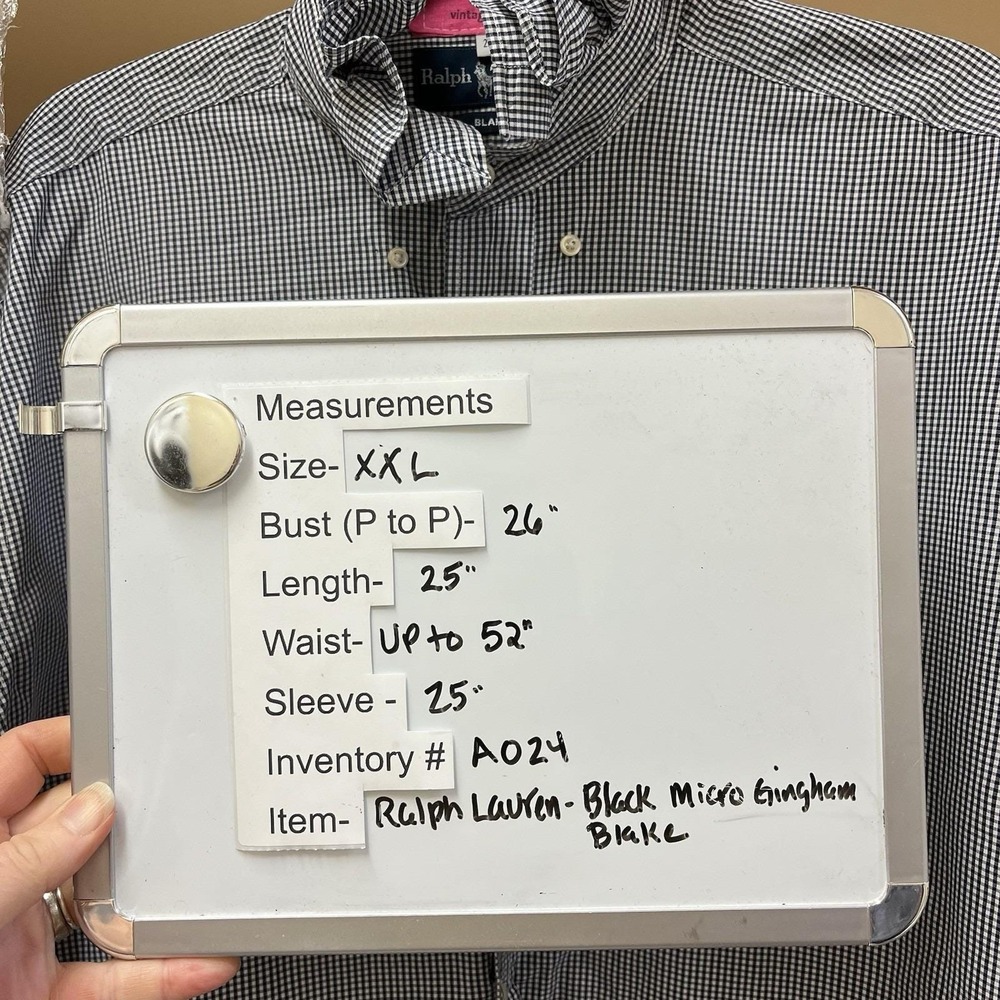 vintag
Ralph
BLA
Measurements
Size- XXL
Bust (P to P)- 26"
Length- 25"
Waist- UP to 52"
Sleeve - 25"
Inventory # A024
Item- Ralph Lauren- Black Micro Gingham
Blake